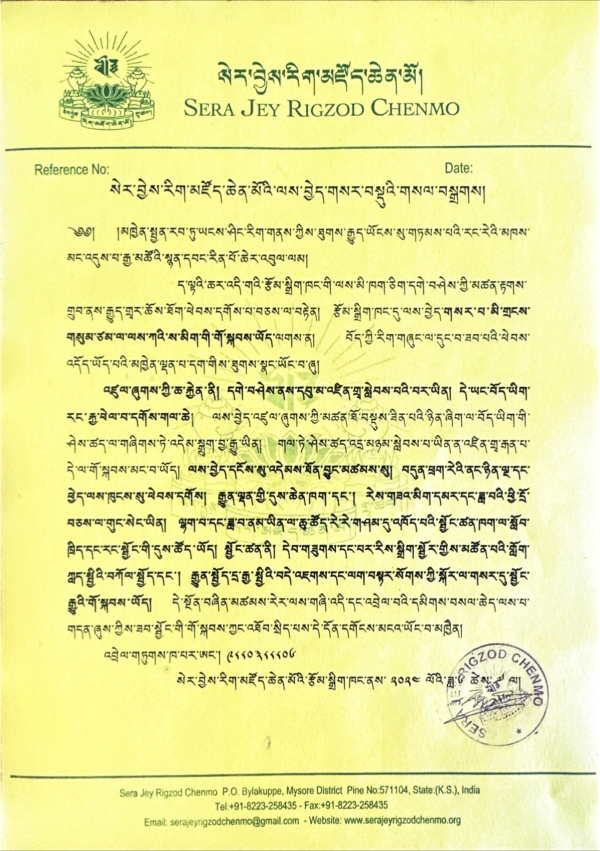 སེར་བྱེས་རིག་མཛོད་ཆེན་མོ།
SERA JEY RIGZOD CHENMO
Reference No:
Date:
སེར་བྱེས་རིག་མཛོད་ཆེན་མོའི་ལས་བྱེད་གསར་བསྡུའི་གསལ་བསྒྲགས།
༄༅། །མཁྱེན་སྤྱན་རབ་ཏུ་ཡངས་ཤིང་རིག་གནས་ཀྱིས་ཐུགས་རྒྱུད་ཡོངས་སུ་གཏམས་པའི་རང་རེའི་མཁས་
མང་འདུས་པ་རྒྱ་མཚོའི་སྙན་དབང་རིན་པོ་ཆེར་འབུལ་ལམ།
ད་ལྟའི་ཆར་འདི་གའི་རྩོམ་སྒྲིག་ཁང་གི་ལས་མི་ཁག་ཅིག་དགེ་བཤེས་ཀྱི་མཚན་རྟགས་
གྲུབ་ནས་རྒྱུད་གྲྭར་ཆོས་ཐོག་ཕེབས་དགོས་པ་བཅས་ལ་བརྟེན། རྩོམ་སྒྲིག་ཁང་དུ་ལས་བྱེད་གསར་པ་མི་གྲངས་
གསུམ་ཙམ་ལ་ལས་ཀའི་ས་མིག་གི་གོ་སྐབས་ཡོད་ལགས་ན། བོད་ཀྱི་རིག་གཞུང་ལ་དུང་བ་ཟབ་པའི་ཕེབས་
འདོད་ཡོད་པའི་མཁྱེན་ལྡན་པ་དག་གིས་ཐུགས་སྣང་ཡོང་བ་ཞུ།
འཛུལ་ཞུགས་ཀྱི་ཆ་རྐྱེན་ནི། དགེ་བཤེས་ནས་དབུ་མ་འཛིན་གྲྭ་སླེབས་པའི་བར་ཡིན། དེ་ཡང་བོད་ཡིག་
རང་རྐྱ་ཕེལ་བ་དགོས་གལ་ཆེ། ལས་བྱེད་འཛུལ་ཞུགས་ཀྱི་མཚན་ཐོ་བསྡུས་ཟིན་པའི་ཉིན་ཞིག་ལ་བོད་ཡིག་གི་
ཤེས་ཚད་ལ་གཞིགས་ཏེ་འདེམ་སྒྲུག་བྱ་རྒྱུ་ཡིན། གལ་ཏེ་ཤེས་ཚད་འདྲ་མཉམ་སླེབས་པ་ཡིན་ན་འཛིན་གྲྭ་རྒན་པ་
དེ་ལ་གོ་སྐབས་མང་བ་ཡོད། ལས་བྱེད་དངོས་སུ་འདེམས་ཐོན་བྱུང་མཚམས་སུ། བདུན་ཕྲག་རེའི་ནང་ཉིན་ལྔ་དང་
ཕྱེད་ལས་ཁུངས་སུ་ཕེབས་དགོས། རྒྱུན་ལྡན་གྱི་དུས་ཆེན་ཁག་དང་། རེས་གཟའ་མིག་དམར་དང་ཟླ་བའི་ཕྱི་དྲོ་
བཅས་ལ་གུང་སེང་ཡིན། ལྷག་པ་དང་ཟླ་བ་ནམ་ཡིན་ལ་ཆུ་ཚོད་རེ་རེ་གཤམ་དུ་འཁོད་པའི་སྦྱོང་ཚན་ཁག་ལ་སློབ་
ཁྲིད་དང་རང་སྦྱོང་གི་དུས་ཚོད་ཡོད། སྦྱོང་ཚན་ནི། དེབ་གཟུགས་དང་པར་རིས་སྒྲིག་སྦྱོར་གྱིས་མཚོན་པའི་གློག་
ཀླད་སྤྱིའི་བཀོལ་སྤྱོད་དང་། རྒྱུན་སྤྱོད་དྲ་རྒྱ་སྤྱིའི་བདེ་འཇགས་དང་ལག་བསྟར་སོགས་ཀྱི་སྐོར་ལ་གསར་དུ་སྦྱོང་
རྒྱུའི་གོ་སྐབས་ཡོད། དེ་སྔོན་བཞིན་མཚམས་རེར་ལས་གཞི་འདི་དང་འབྲེལ་བའི་དམིགས་བསལ་ཆེད་ལས་པ་
གདན་ཞུས་ཀྱིས་ཟབ་སྦྱོང་གི་གོ་སྐབས་ཀྱང་འཐོབ་སྲིད་པས་དེ་དོན་དགོངས་མངའ་ཡོང་བ་མཁྱེན།
འབྲེལ་གཏུགས་ཁ་པར་ཨང་།
སེར་བྱེས་རིག་མཛོད་ཆེན་མོའི་རྩོམ་སྒྲིག་ཁང་ནས་ ༢༠༢༤ ལོའི་ཟླ་ ༦ ཚེས་ ༧ ལ།
SERA JEY RIGZOD CHENMO
Sera Jey Rigzod Chenmo P.O. Bylakuppe, Mysore District Pine No:571104, State:(K.S.), India
Tel:+91-8223-258435 - Fax:+91-8223-258435
Email: serajeyrigzodchenmo@gmail.com - Website: www.serajeyrigzodchenmo.org